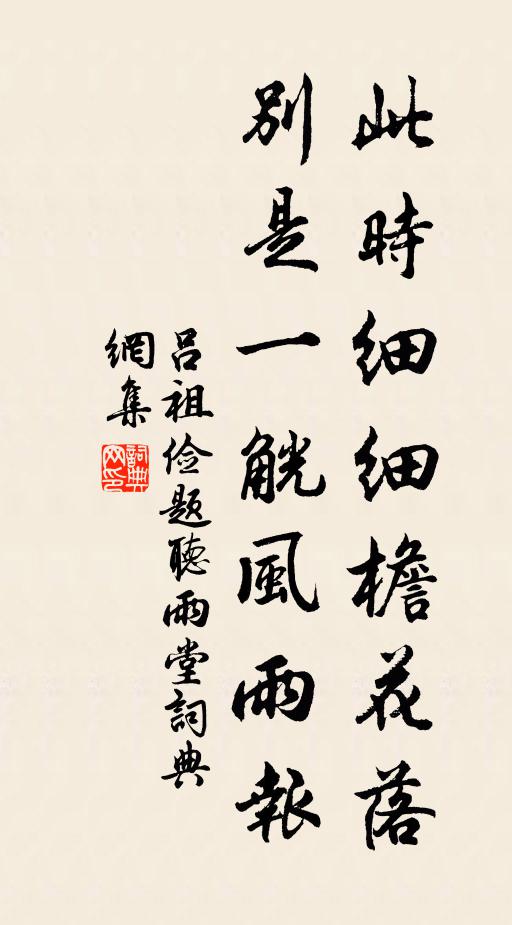 此時細細檐花落
別是一觥風雨報
呂祖儉題聽雨堂詞典
網集
詞典
网印